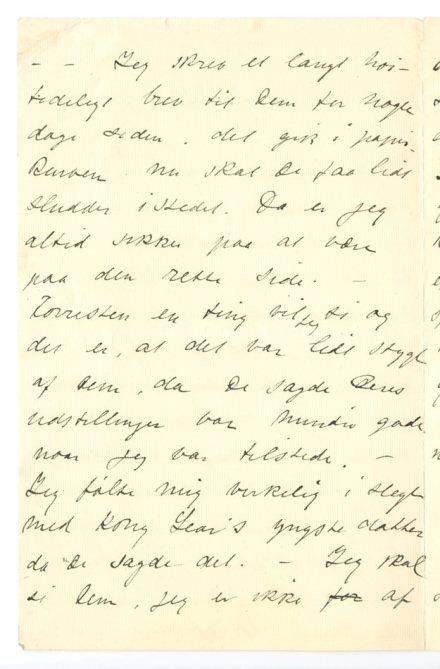 – – Jeg skrev et langt høi-
tideligt brev til Dem for nogle
dage siden, det gik i papir-
kurven nu skal De faa lidt
sludder i stedet. Da er jeg
altid sikker paa at være
paa den rette side. –
Forresten en ting vil jeg si og
det er, at det var lidt stygt
af Dem, da De sagde Deres
udstillinger var mindre gode
naar jeg var tilstede. –
Jeg følte mig virkelig i slegt
med Kong Lear's yngste datter
da De sagde det. – Jeg skal
si Dem, jeg er ikke for af